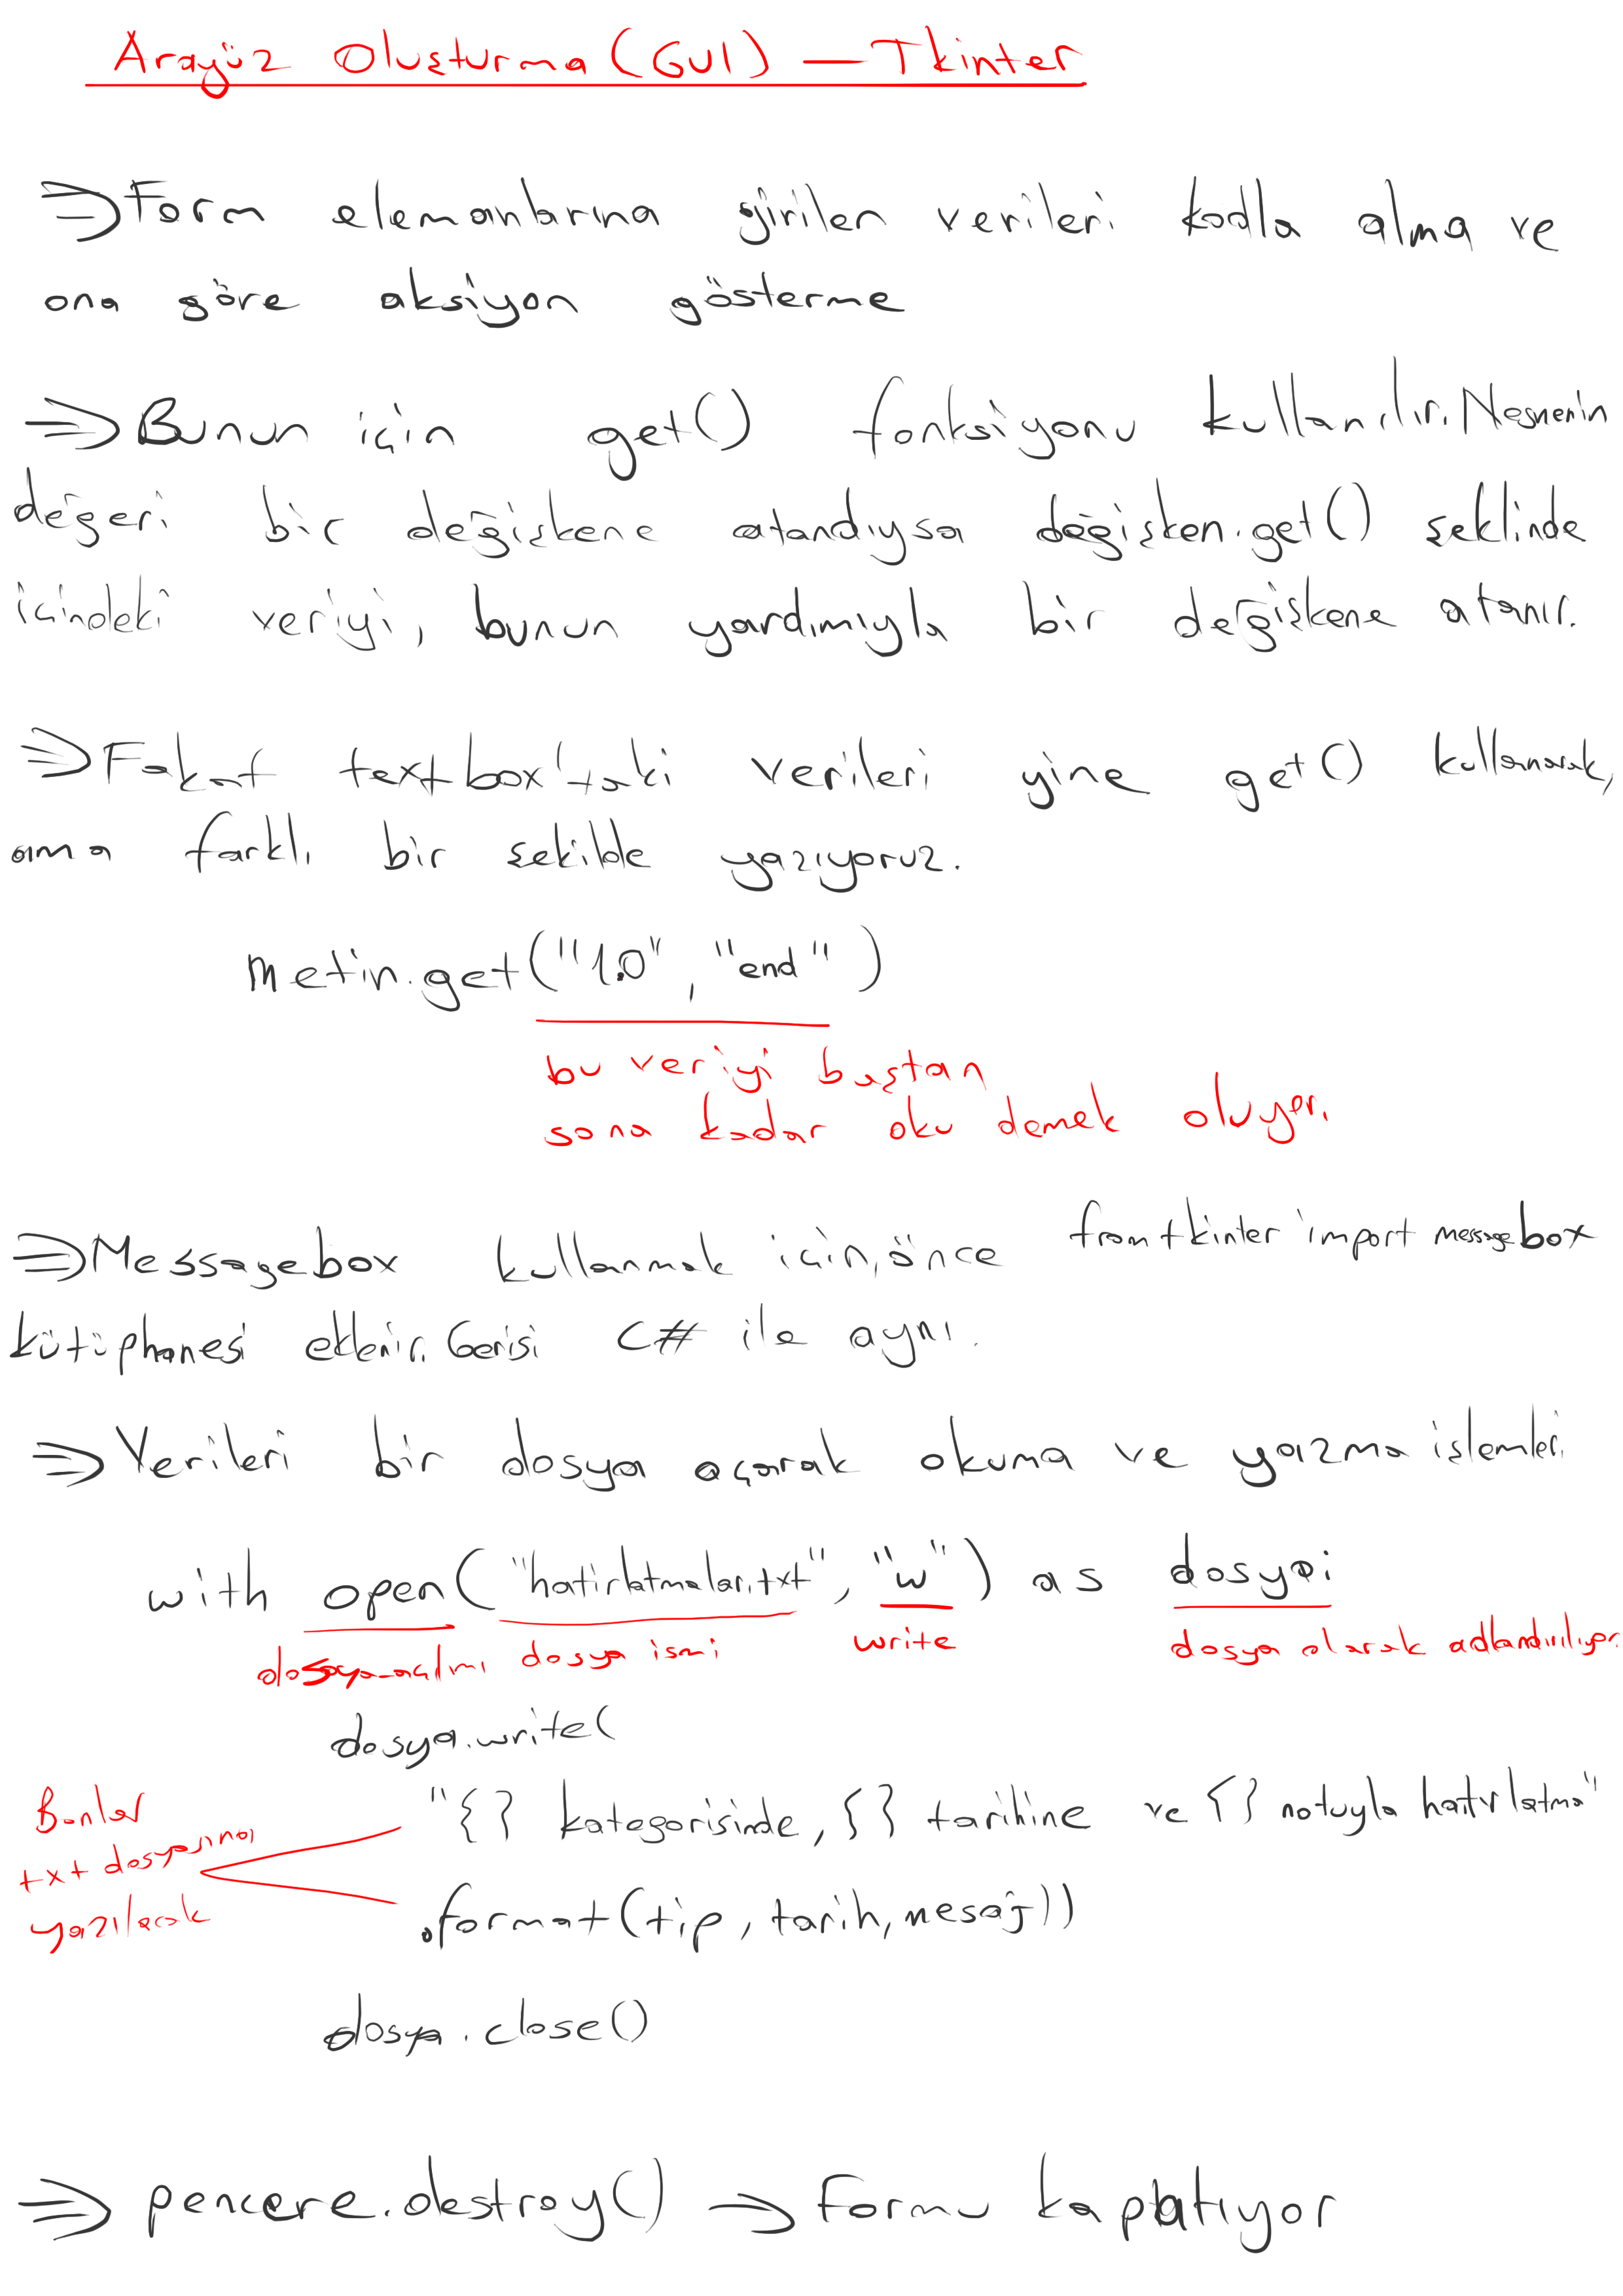 Arayüz Oluşturma (GUI) — Tkinter
⇒ Form elemanlarına girilen verileri kodla alma ve
ona göre aksiyon gösterme
⇒ Bunun için get() fonksiyonu kullanılır. Nesnenin
değeri bir değişkene atandıysa değişken.get() şeklinde
içindeki veriyi, bunun yardımıyla bir değişkene atanır.
⇒ Fakat textbox'taki verileri yine get() kullanarak,
ama farklı bir şekilde yazıyoruz.
metin.get("1.0", "end")
bu veriyi baştan
sona kadar oku demek oluyor.
⇒ Messagebox kullanmak için, önce from tkinter import messagebox
kütüphanesi eklenir. Gerisi C# ile aynı.
⇒ Verileri bir dosya açarak okuma ve yazma işlemleri
with open("hatirlatmalar.txt", "w") as dosya:
dosya açılımı dosya ismi write dosya olarak adlandırılıyor.
dosya.write(
"{} kategorisinde, {} tarihine ve {} notuyla hatırlatma"
Bunlar
txt dosyasına
yazılacak
.format(tip, tarih, mesaj))
dosya.close()
⇒ pencere.destroy() → Formu kapatıyor